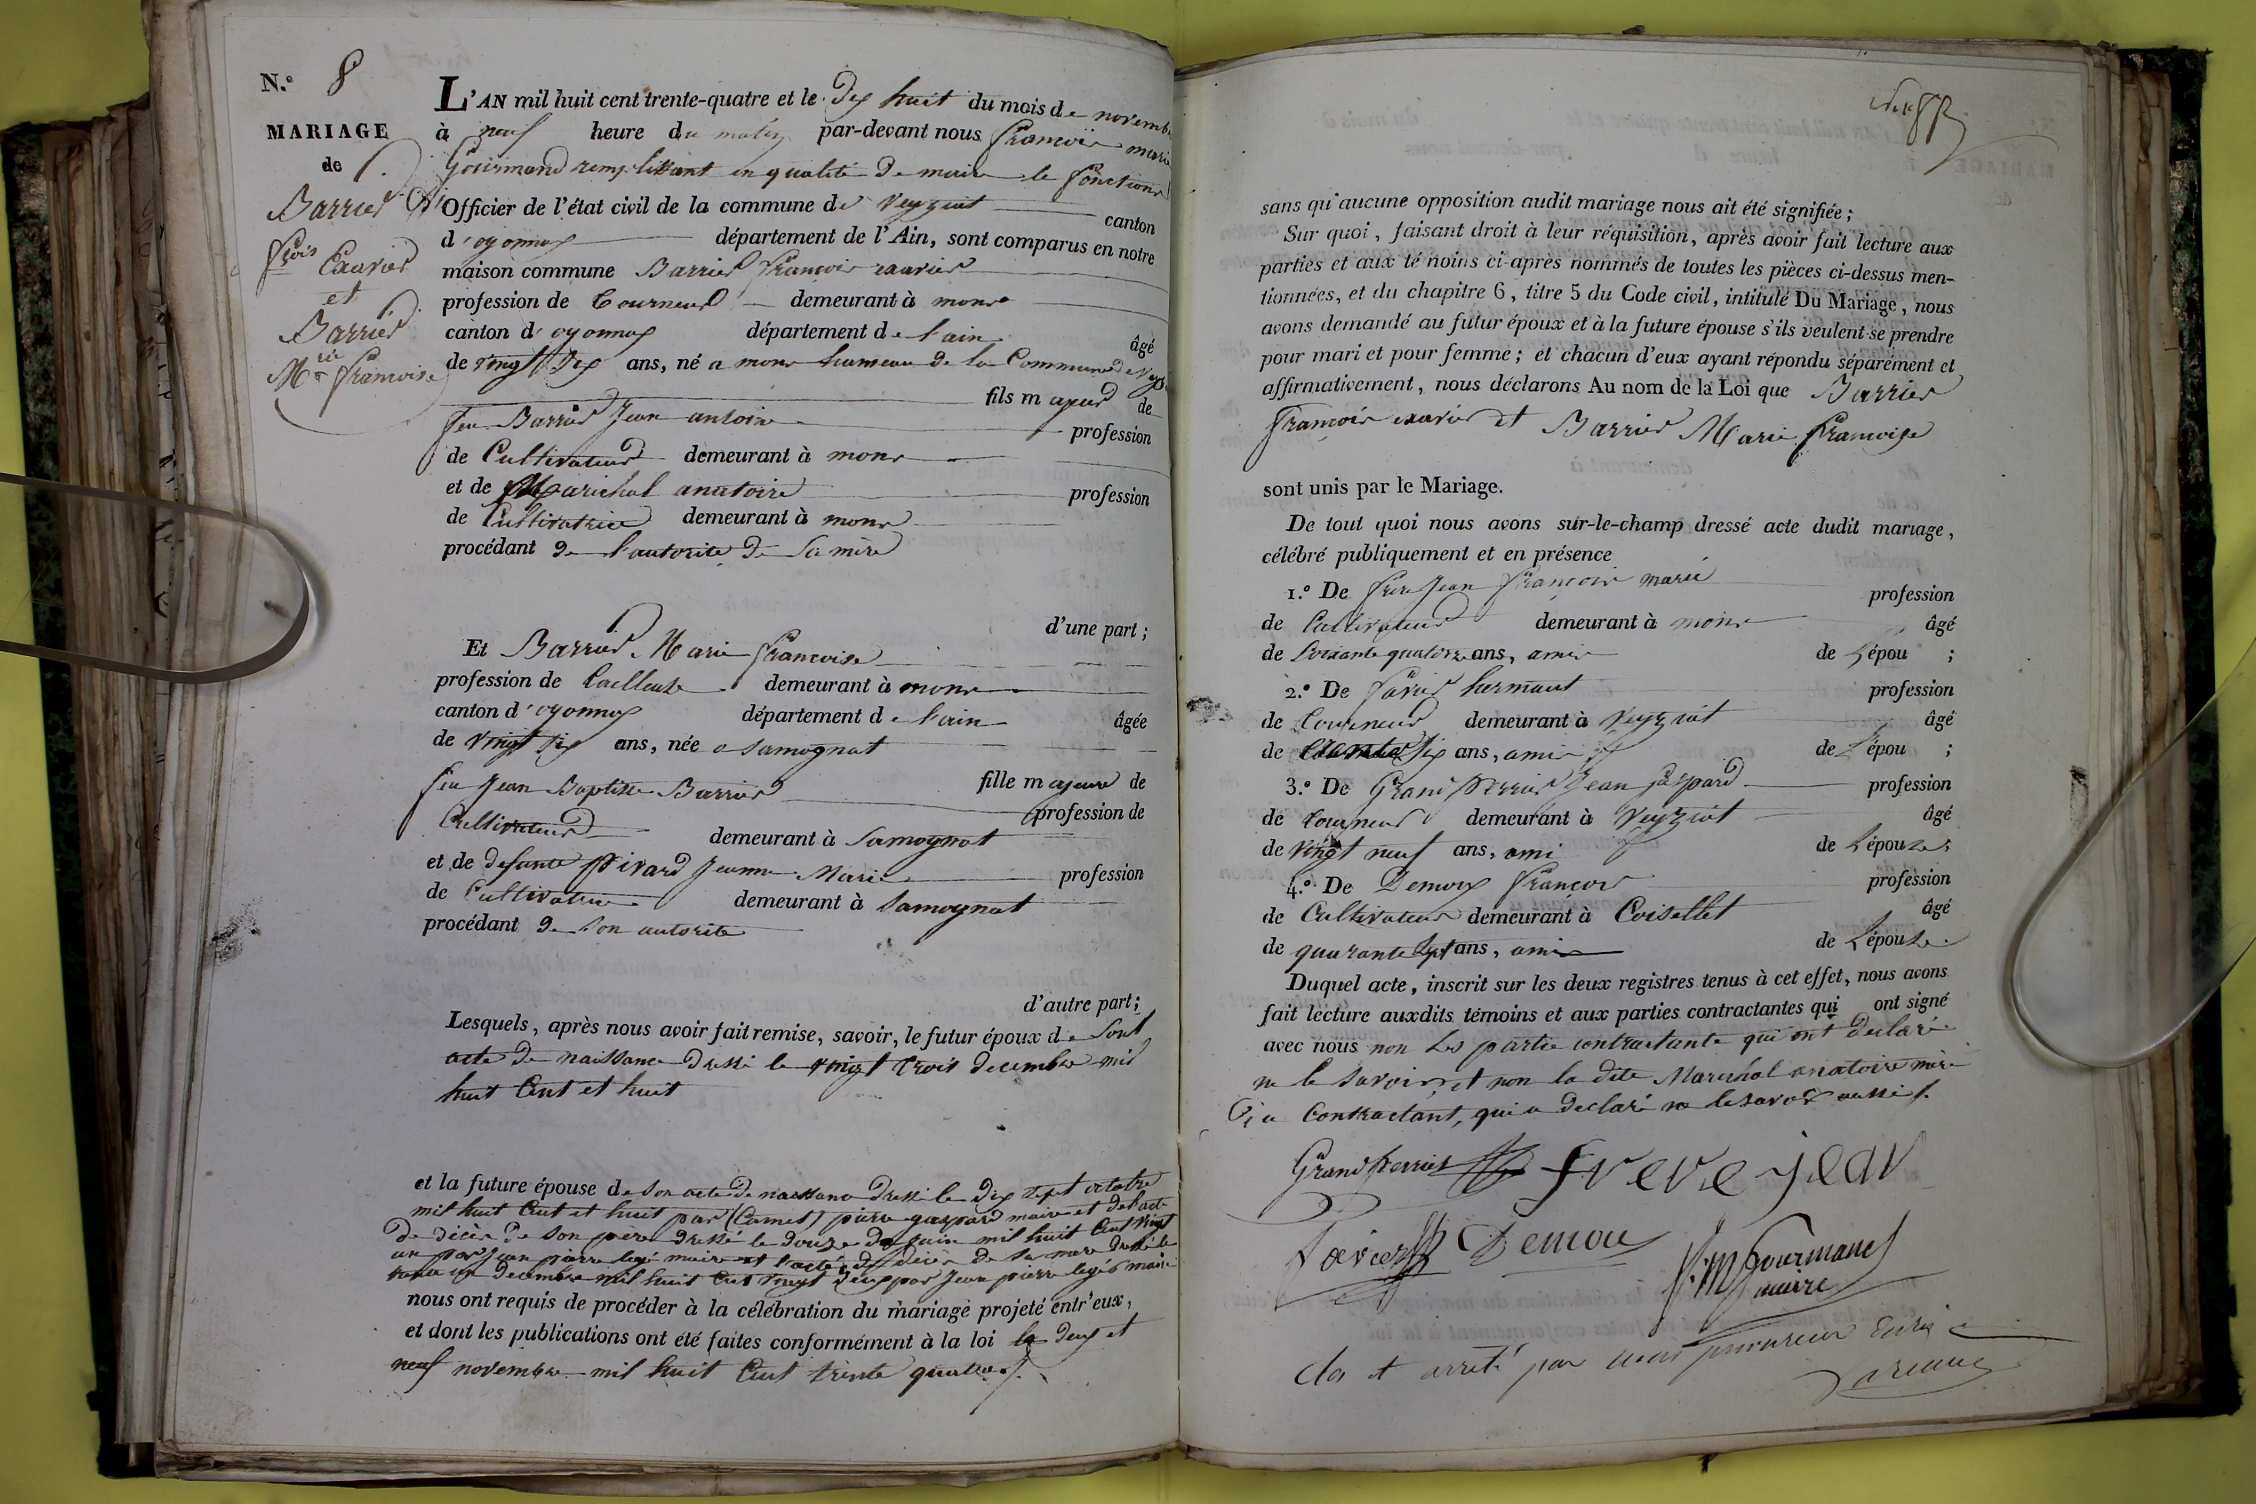 N.° 8
MARIAGE
de
Barrier
fçois
Exavier
et
Barrier
Mrie francoise
L'AN mil huit cent trente-quatre et le dix huit du mois de novembre
à neuf heure du matin par-devant nous francois marie
Gourmand remplissant en qualité de maire le fonctions
d'Officier de l'état civil de la commune de Veyziat canton
d'oyonnax département de l'Ain, sont comparus en notre
maison commune Barrier francois exavier
profession de Tourneur demeurant à mons
canton d'oyonnax département de l'ain âgé
de vingt six ans, né a mons hameau de la Commune de Veyziat
fils majeur de
feu Barrier Jean antoine
profession
de Cultivateur demeurant à mons
et de Marichal anatoire profession
de Cultivatrice demeurant à mons
procédant de l'autorite de Sa mère
d'une part ;
Et Barrier Marie francoise
profession de demeurant à mons
canton d'oyonnax département de l'ain âgée
de vingt six ans, née a Samognat
fille majeure de
feu Jean Baptiste Barrier
profession de
Cultivateur demeurant à Samognat
et de defunte Pivard Jeanne Marie profession
de Cultivatrice demeurant à Samognat
procédant de Son autorite
d'autre part ;
Lesquels, après nous avoir fait remise, savoir, le futur époux de Sont
acte de naissance dressé le vingt trois decembre mil
huit Cent et huit
et la future épouse de Son acte de naissance dressé le dix sept octobre
mil huit Cent et huit par (Camet) pierre gaspard maire et de l'acte
de décès de Son père dressé le douze de juin mil huit Cent vingt
un par Jean pierre legé maire et l'acte de décès de Sa mere dressé le
un decembre mil huit Cent vingt deux par Jean pierre legé maire
nous ont requis de procéder à la célébration du mariage projeté entr'eux,
et dont les publications ont été faites conformément à la loi le deux et
neuf novembre mil huit Cent trente quatre
sans qu'aucune opposition audit mariage nous ait été signifiée ;
Sur quoi, faisant droit à leur réquisition, après avoir fait lecture aux
parties et aux témoins ci-après nommés de toutes les pièces ci-dessus men-
tionnées, et du chapitre 6, titre 5 du Code civil, intitulé Du Mariage, nous
avons demandé au futur époux et à la future épouse s'ils veulent se prendre
pour mari et pour femme ; et chacun d'eux ayant répondu séparément et
affirmativement, nous déclarons Au nom de la Loi que Barrier
francois exavier et Barrier Marie francoise
sont unis par le Mariage.
De tout quoi nous avons sur-le-champ dressé acte dudit mariage,
célébré publiquement et en présence
1.° De frere Jean françois marie profession
de Cultivateur demeurant à mons âgé
de Soixante quatorze ans, amis de L'épou ;
2.° De favier hermant profession
de Tourneur demeurant à Veyziat âgé
de six ans, amis de L'épou ;
3.° De Grand Perrier Jean gaspard profession
de Tourneur demeurant à Veyziat âgé
de vingt neuf ans, ami de L'épouze ;
4.° De Demoux francois profession
de Cultivateur demeurant à Coisellet âgé
de quarante Sept ans, amis de L'épouse.
Duquel acte, inscrit sur les deux registres tenus à cet effet, nous avons
fait lecture auxdits témoins et aux parties contractantes qui ont signé
avec nous non Les partie contractante qui ont declaré
ne le Savoir, et non la dite Marichal anatoire mère
du Contractant, qui a declaré ne le savoir aussi
Grand Perrier frere jean
favier Demoux
f. M Gourmand
maire
clos et arreté par nous procureur du roi